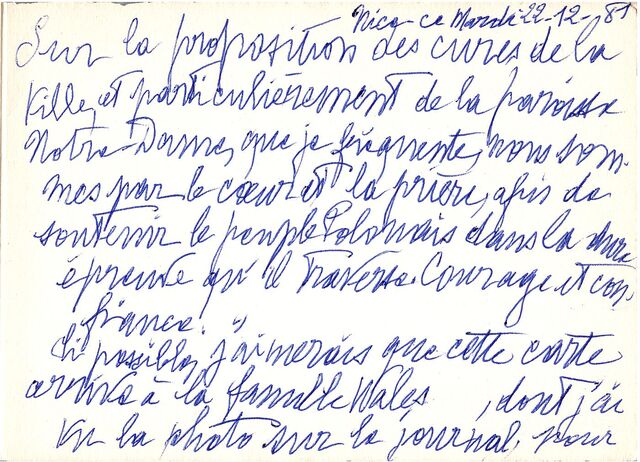 Nice, ce Mardi 22-12-81
Sur la proposition des cures de la
Ville, et particulièrement de la paroisse
Notre-Dame, que je fréquente, nous som-
mes par le cœur et la prière, afin de
soutenir le peuple Polonais dans la dure
épreuve qu'il traverse. Courage et con-
fiance.
Si possible, j'aimerais que cette carte
arrive à la famille Wales, dont j'ai
vu la photo sur le journal, pour